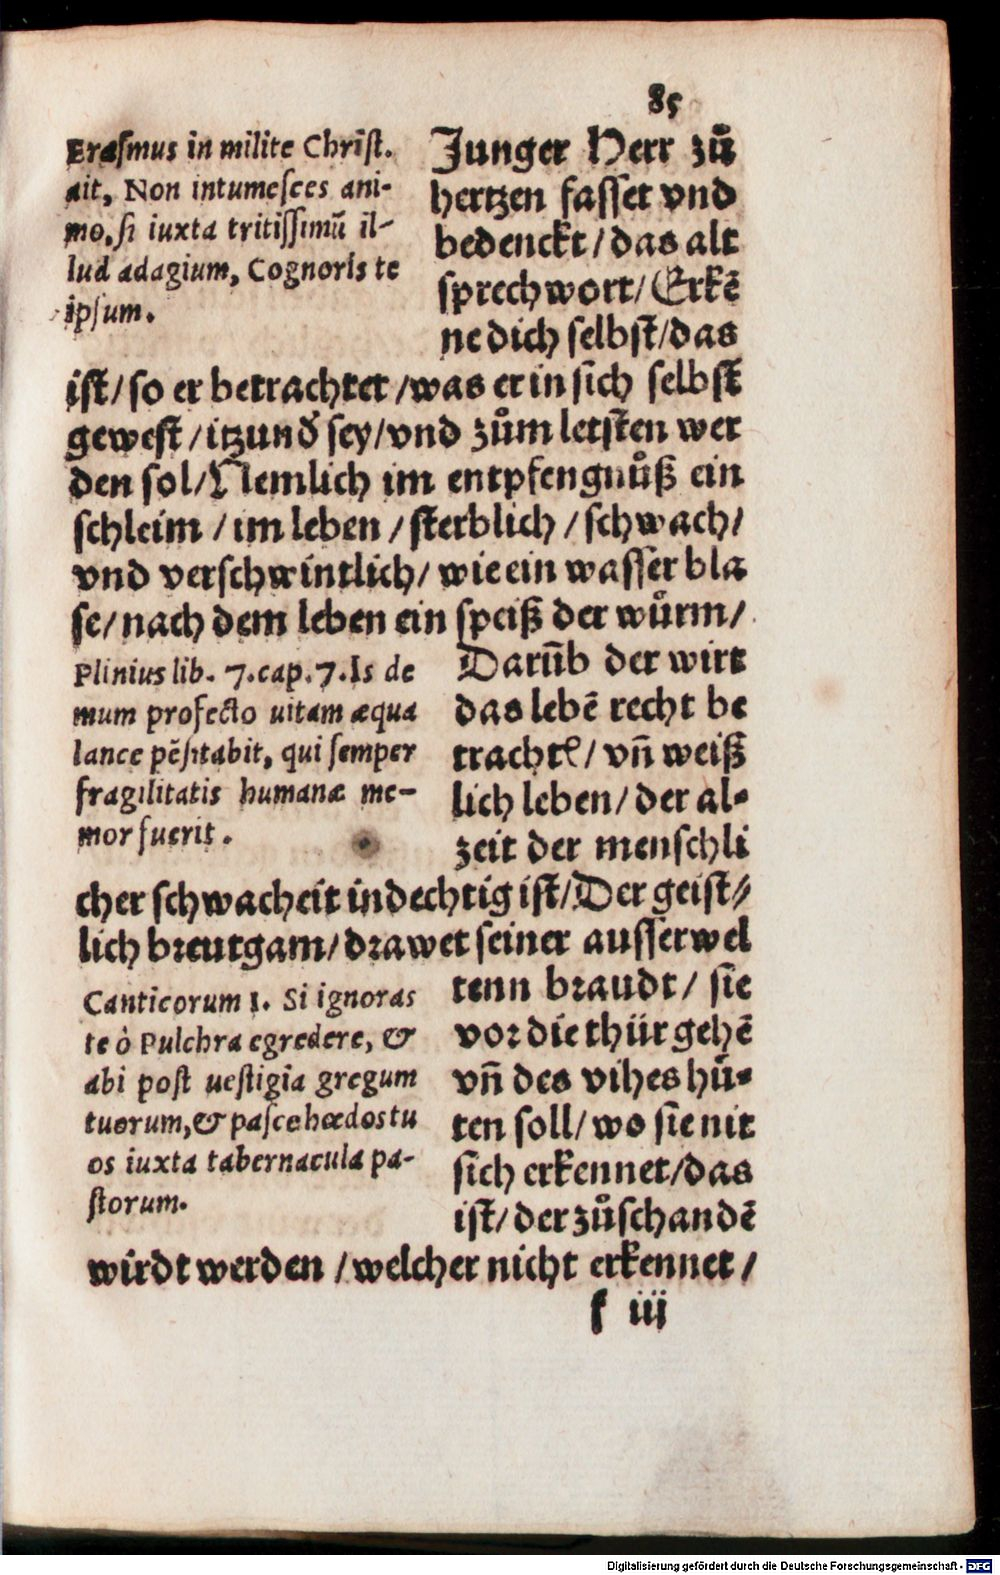 85
Erasmus in milite Christ.
ait, Non intumesces ani-
mo, si iuxta tritissimũ il-
lud adagium, Cognoris te
ipsum.
Junger Herr zů
hertzen fasset vnd
bedenckt / das alt
sprechwort / Erkē
ne dich selbst / das
ist / so er betrachtet / was er in sich selbst
gewest / itzund sey / vnd zům letsten wer
den sol / Nemlich im entpfengnůß ein
schleim / im leben / sterblich / schwach /
vnd verschwintlich / wie ein wasser bla
se / nach dem leben ein speiß der wůrm /
Plinius lib. 7. cap. 7. Is de
mum profecto uitam æqua
lance pēsitabit, qui semper
fragilitatis humanæ me-
mor fuerit.
Darũb der wirt
das lebē recht be
tracht / vñ weiß
lich leben / der al-
zeit der menschli
cher schwacheit indechtig ist / Der geist-
lich breutgam / drawet seiner ausserwel
Canticorum 1. Si ignoras
te ò Pulchra egredere, &
abi post uestigia gregum
tuorum, & pasce hœdos tu
os iuxta tabernacula pa-
storum.
tenn braudt / sie
vor die thür gehē
vñ des vihes hů-
ten soll / wo sie nit
sich erkennet / das
ist / der zůschandē
wirdt werden / welcher nicht erkennet /
f iij
Digitalisierung gefördert durch die Deutsche Forschungsgemeinschaft - DFG